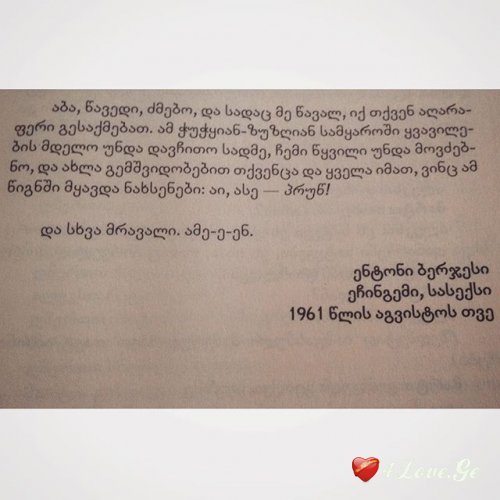 აბა, წავედი, ძმებო, და სადაც მე წავალ, იქ თქვენ აღარა-
ფერი გესაქმებათ. ამ ჭუჭყიან-ზუზღიან სამყაროში ყვავილე-
ბის მდელო უნდა დავჩითო სადმე, ჩემი წყვილი უნდა მოვძებ-
ნო, და ახლა გემშვიდობებით თქვენცა და ყველა იმათ, ვინც ამ
წიგნში მყავდა ნახსენები: აი, ასე — პრუწ!
და სხვა მრავალი. ამე-ე-ენ.
ენტონი ბერჯესი
ეჩინგემი, სასექსი
1961 წლის აგვისტოს თვე
4Love.Ge